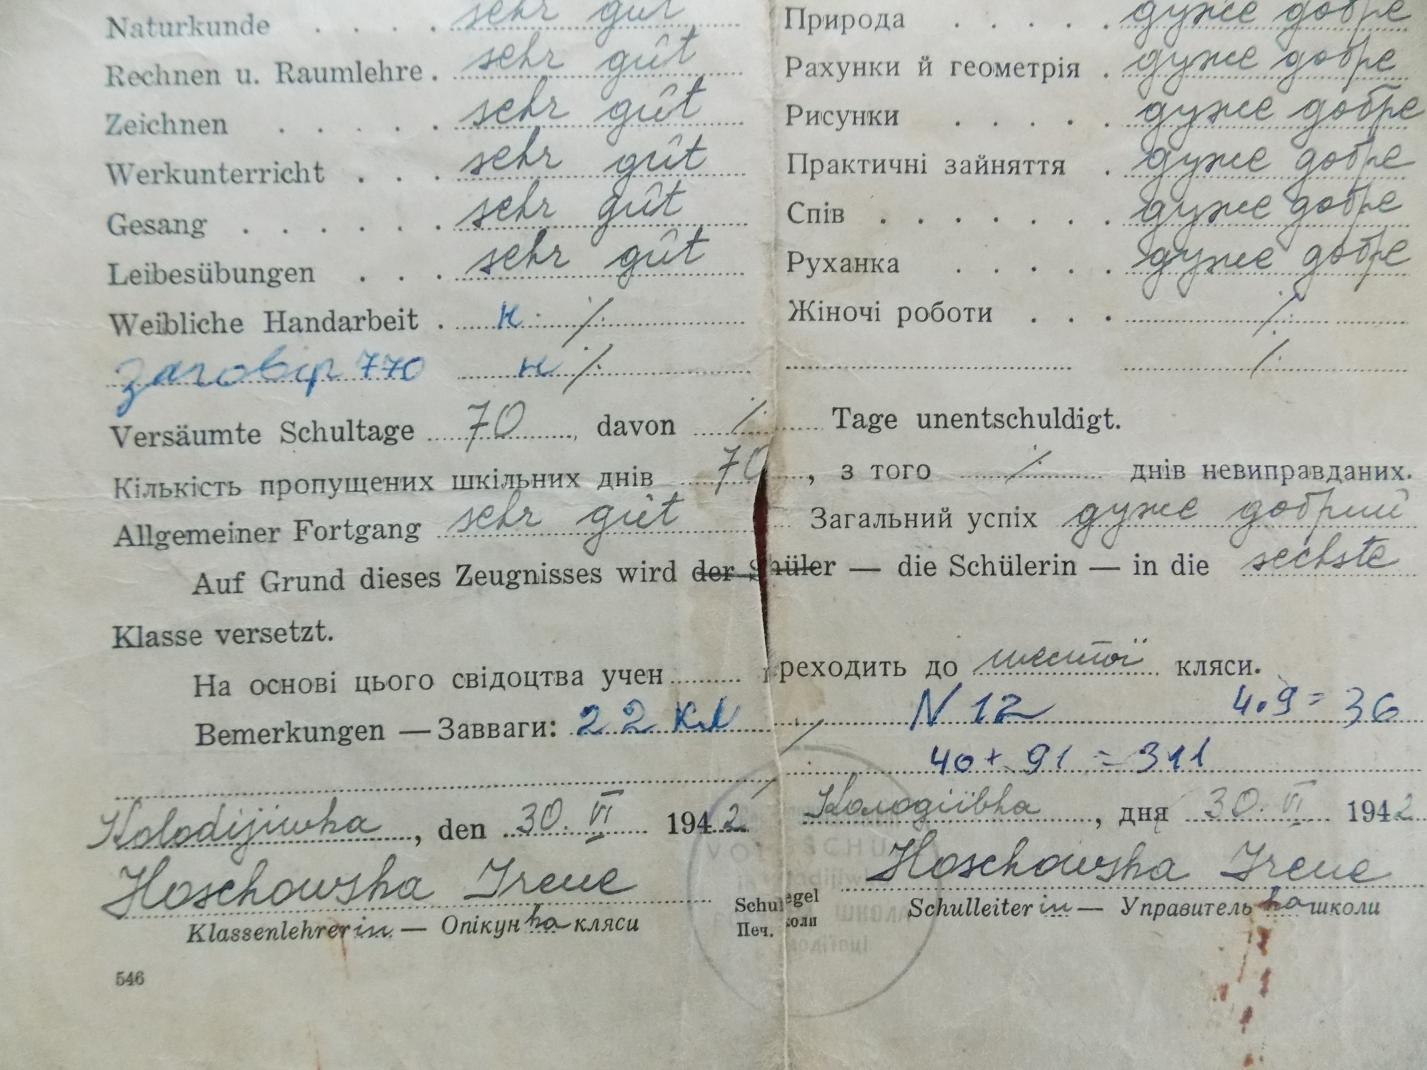 Naturkunde . . . . sehr gut Природа . . . . . дуже добре
Rechnen u. Raumlehre . sehr gut Рахунки й геометрія . дуже добре
Zeichnen . . . . . sehr gut Рисунки . . . . . дуже добре
Werkunterricht . . . sehr gut Практичні зайняття . дуже добре
Gesang . . . . . . sehr gut Спів . . . . . . . дуже добре
Leibesübungen . . . sehr gut Руханка . . . . . дуже добре
Weibliche Handarbeit . н. ∕. Жіночі роботи . . . ∕.
заговір 770 н ∕. ∕.
Versäumte Schultage 70, davon ∕. Tage unentschuldigt.
Кількість пропущених шкільних днів 70, з того ∕. днів невиправданих.
Allgemeiner Fortgang sehr gut Загальний успіх дуже добрий
Auf Grund dieses Zeugnisses wird der Schüler — die Schülerin — in die sechste
Klasse versetzt.
На основі цього свідоцтва учен........ реходить до шестої кляси.
Bemerkungen — Завваги: 22 кл N 12 4.9 = 36
40 + 91 = 311
Kolodijiwka, den 30. VI 1942 Колодіївка, дня 30. VI 1942
Hoschowska Irene Hoschowska Irene
Klassenlehrerin — Опікунка кляси Schulsiegel Schulleiterin — Управителька школи
Печ. школи
VOLKSSCHULE
ШКОЛА
546